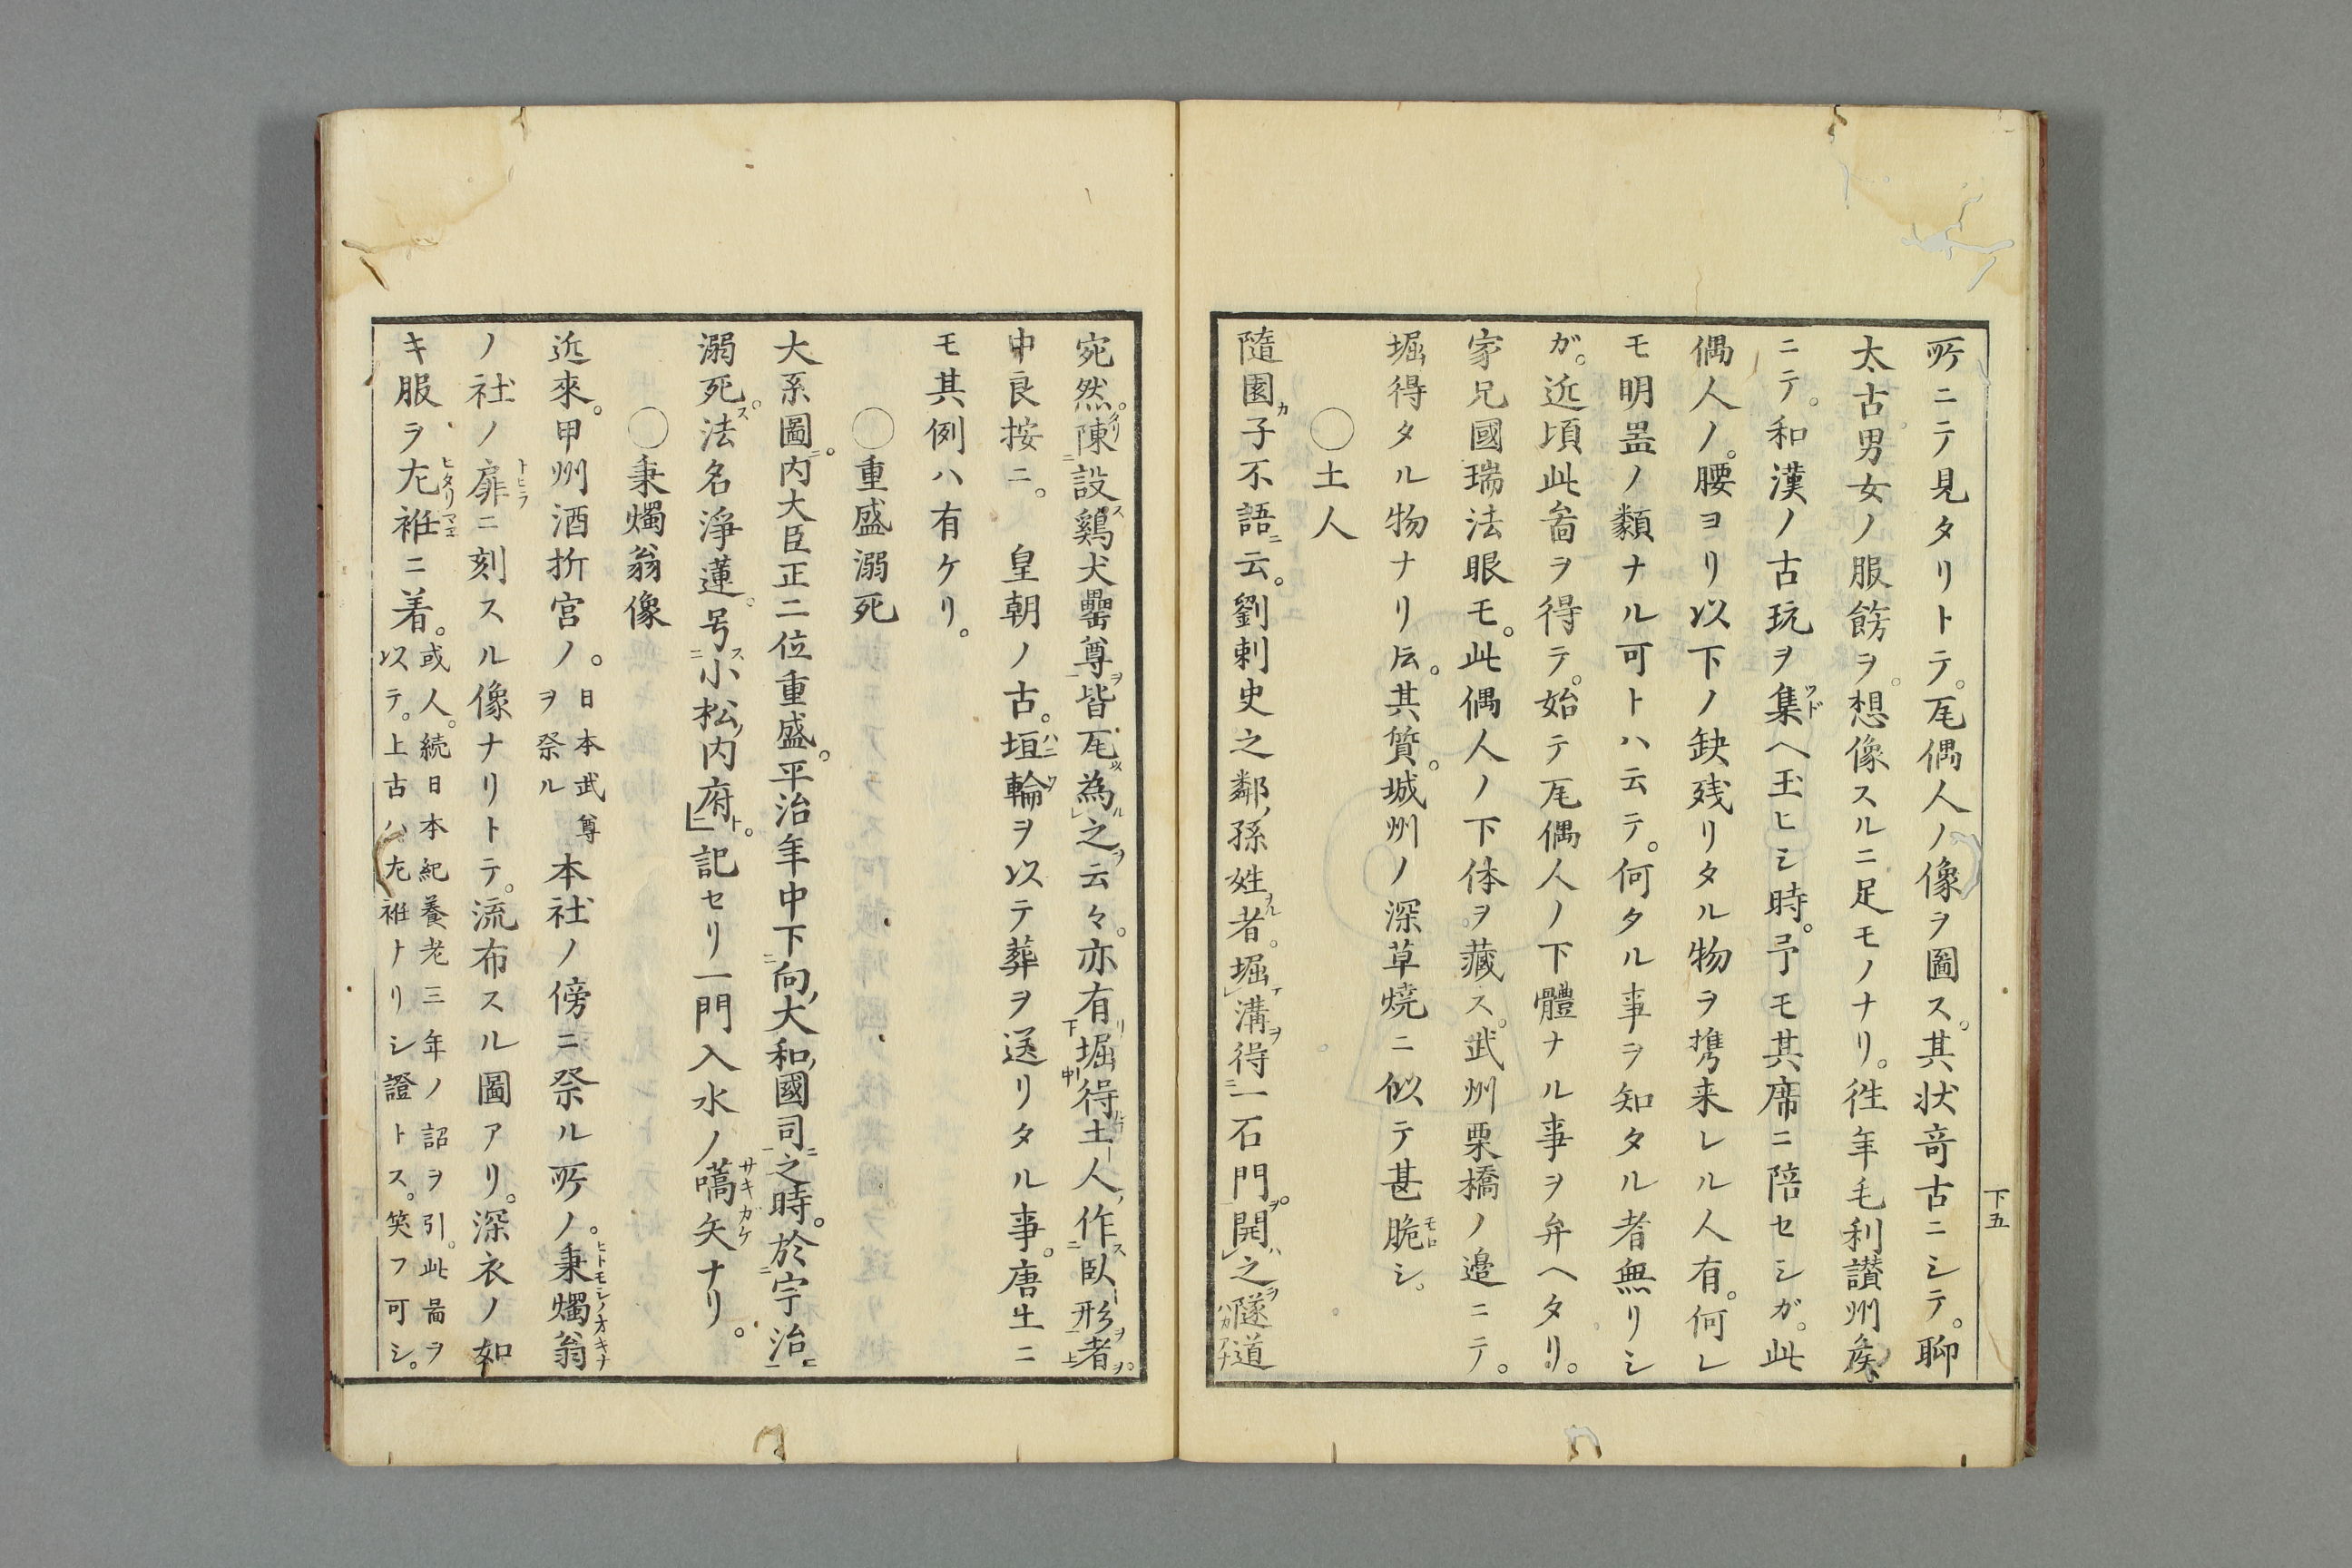 所ニテ見タリトテ。瓦偶人ノ像ヲ圖ス。其状竒古ニシテ。聊
太古男女ノ服餝ヲ。想像スルニ足モノナリ。徃年毛利讃州矦
ニテ。和漢ノ古玩ヲ集ヘ玉ヒシ時。予モ其席ニ陪セシガ。此
偶人ノ。腰ヨリ以下ノ缺残リタル物ヲ携来レル人有。何レ
モ明噐ノ類ナル可トハ云テ。何タル事ヲ知タル者無リシ
ガ。近頃此啚ヲ得テ。始テ瓦偶人ノ下體ナル事ヲ弁ヘタリ。
家兄國瑞法眼モ。此偶人ノ下体ヲ藏ス。武州栗橋ノ邉ニテ。
堀得タル物ナリ𪜈。其質。城州ノ深草燒ニ似テ甚脆シ。
〇土人
隨園子不語云。劉刺史之鄰孫姓者。堀溝得一石門。開之隧道
下五
宛然。陳設鷄犬罍尊皆瓦為之云々。亦有堀得土人作臥形者。
中良按ニ。皇朝ノ古。垣輪ヲ以テ葬ヲ送リタル事。唐土ニ
モ其例ハ有ケリ。
〇重盛溺死
大系圖。内大臣正二位重盛。平治年中下向大和國司之時。於宇治
溺死。法名淨蓮。号小松内府。記セリ一門入水ノ嚆矢ナリ。
〇秉燭翁像
近來。甲州酒折宮ノ。日本武尊ヲ祭ル本社ノ傍ニ祭ル所ノ。秉燭翁
ノ社ノ扉ニ刻スル像ナリトテ。流布スル圖アリ。深衣ノ如
キ服ヲ左袵ニ着。或人。続日本紀養老三年ノ詔ヲ引。此啚ヲ
以テ。上古ハ左袵トリシ證トス。笑フ可シ。